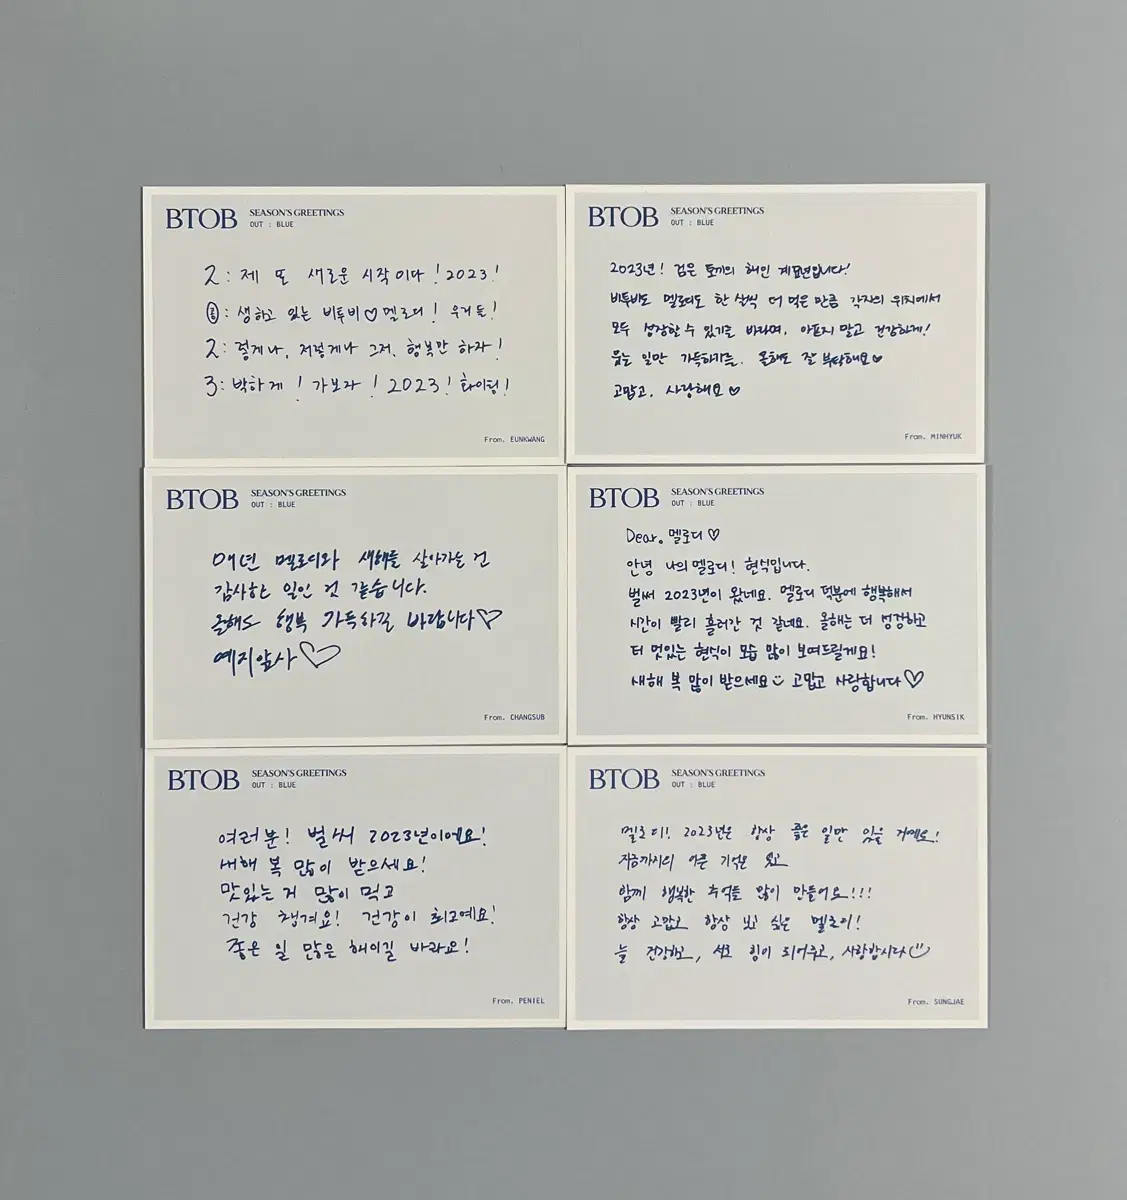 BTOB SEASON'S GREETINGS
OUT : BLUE
2: 제 또 새로운 시작이다! 2023!
: 생하고 있는 비투비♡멜로디! 우리들!
2: 렇게나, 저렇게나 그저, 행복만 하자!
3: 박하게! 가보자! 2023! 화이팅!
From. EUNKWANG
BTOB SEASON'S GREETINGS
OUT : BLUE
2023년! 검은 토끼의 해인 계묘년입니다!
비투비도 멜로디도 한 살씩 더 먹은 만큼 각자의 위치에서
모두 성장할 수 있기를 바라며, 아프지 말고 건강하게!
웃는 일만 가득하기를. 올해도 잘 부탁해요♡
고맙고, 사랑해요♡
From. MINHYUK
BTOB SEASON'S GREETINGS
OUT : BLUE
매년 멜로디와 새해를 살아가는 건
감사한 일인 것 같습니다.
올해도 행복 가득하길 바랍니다♡
예지앞사♡
From. CHANGSUB
BTOB SEASON'S GREETINGS
OUT : BLUE
Dear. 멜로디♡
안녕 나의 멜로디! 현식입니다.
벌써 2023년이 왔네요. 멜로디 덕분에 행복해서
시간이 빨리 흘러간 것 같네요. 올해는 더 성장하고
더 멋있는 현식이 모습 많이 보여드릴게요!
새해 복 많이 받으세요 고맙고 사랑합니다♡
From. HYUNSIK
BTOB SEASON'S GREETINGS
OUT : BLUE
여러분! 벌써 2023년이에요!
새해 복 많이 받으세요!
맛있는 거 많이 먹고
건강 챙겨요! 건강이 최고예요!
좋은 일 많은 해이길 바라요!
From. PENIEL
BTOB SEASON'S GREETINGS
OUT : BLUE
멜로디! 2023년은 항상 좋은 일만 있을 거예요!
지금까지의 아픈 기억은 잊고
함께 행복한 추억들 많이 만들어요!!!
항상 고맙고 항상 보고 싶은 멜로디!
늘 건강하고, 서로 힘이 되어주고, 사랑합시다
From. SUNGJAE